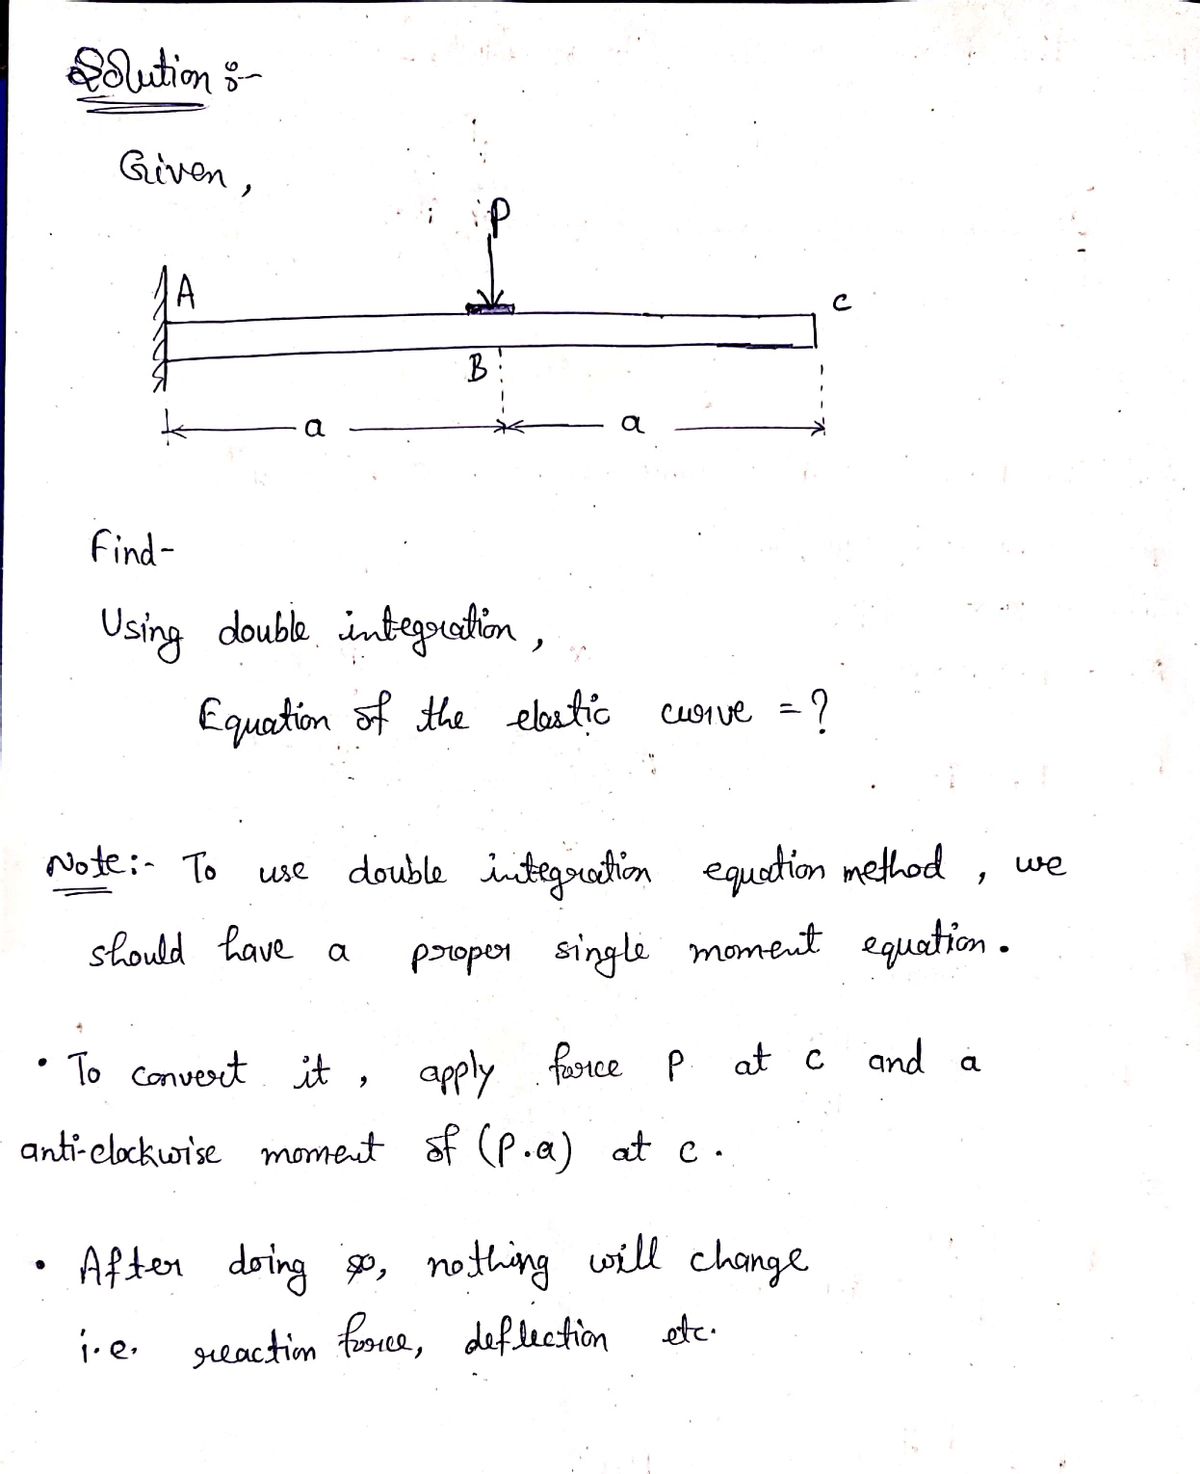 Solution :-
Given,
P
A
C
B
a
a
Find-
Using double integration,
Equation of the elastic curve = ?
Note:- To use double integration equation method, we
should have a proper single moment equation.
• To convert it, apply force P at c and a
anti-clockwise moment of (P.a) at c.
• After doing so, nothing will change
i.e. reaction force, deflection etc.